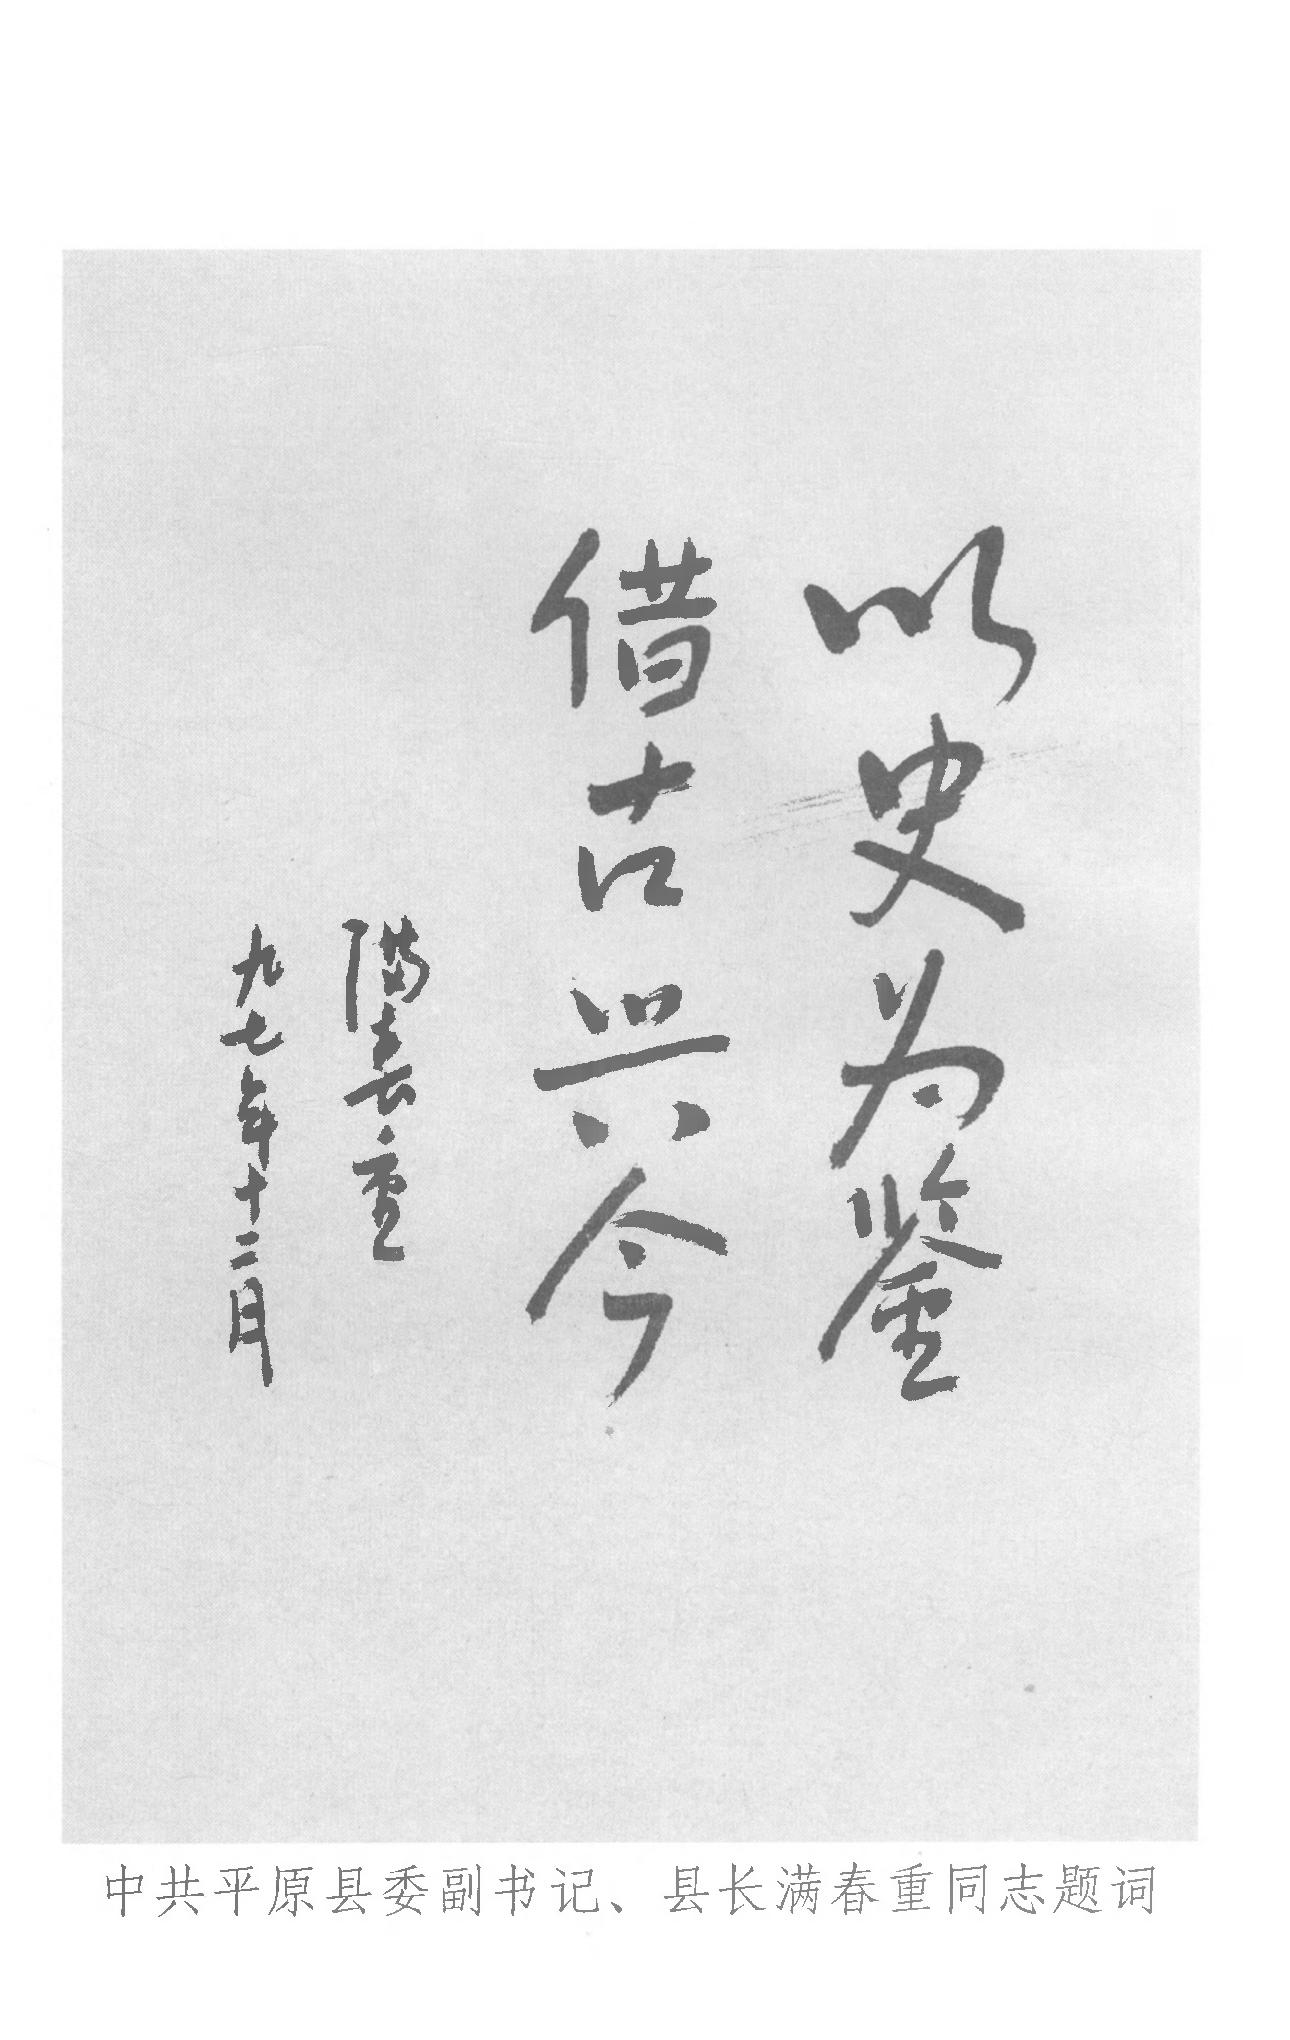 以史为鉴
借古兴今
满春重
九七年十二月
中共平原县委副书记、县长满春重同志题词